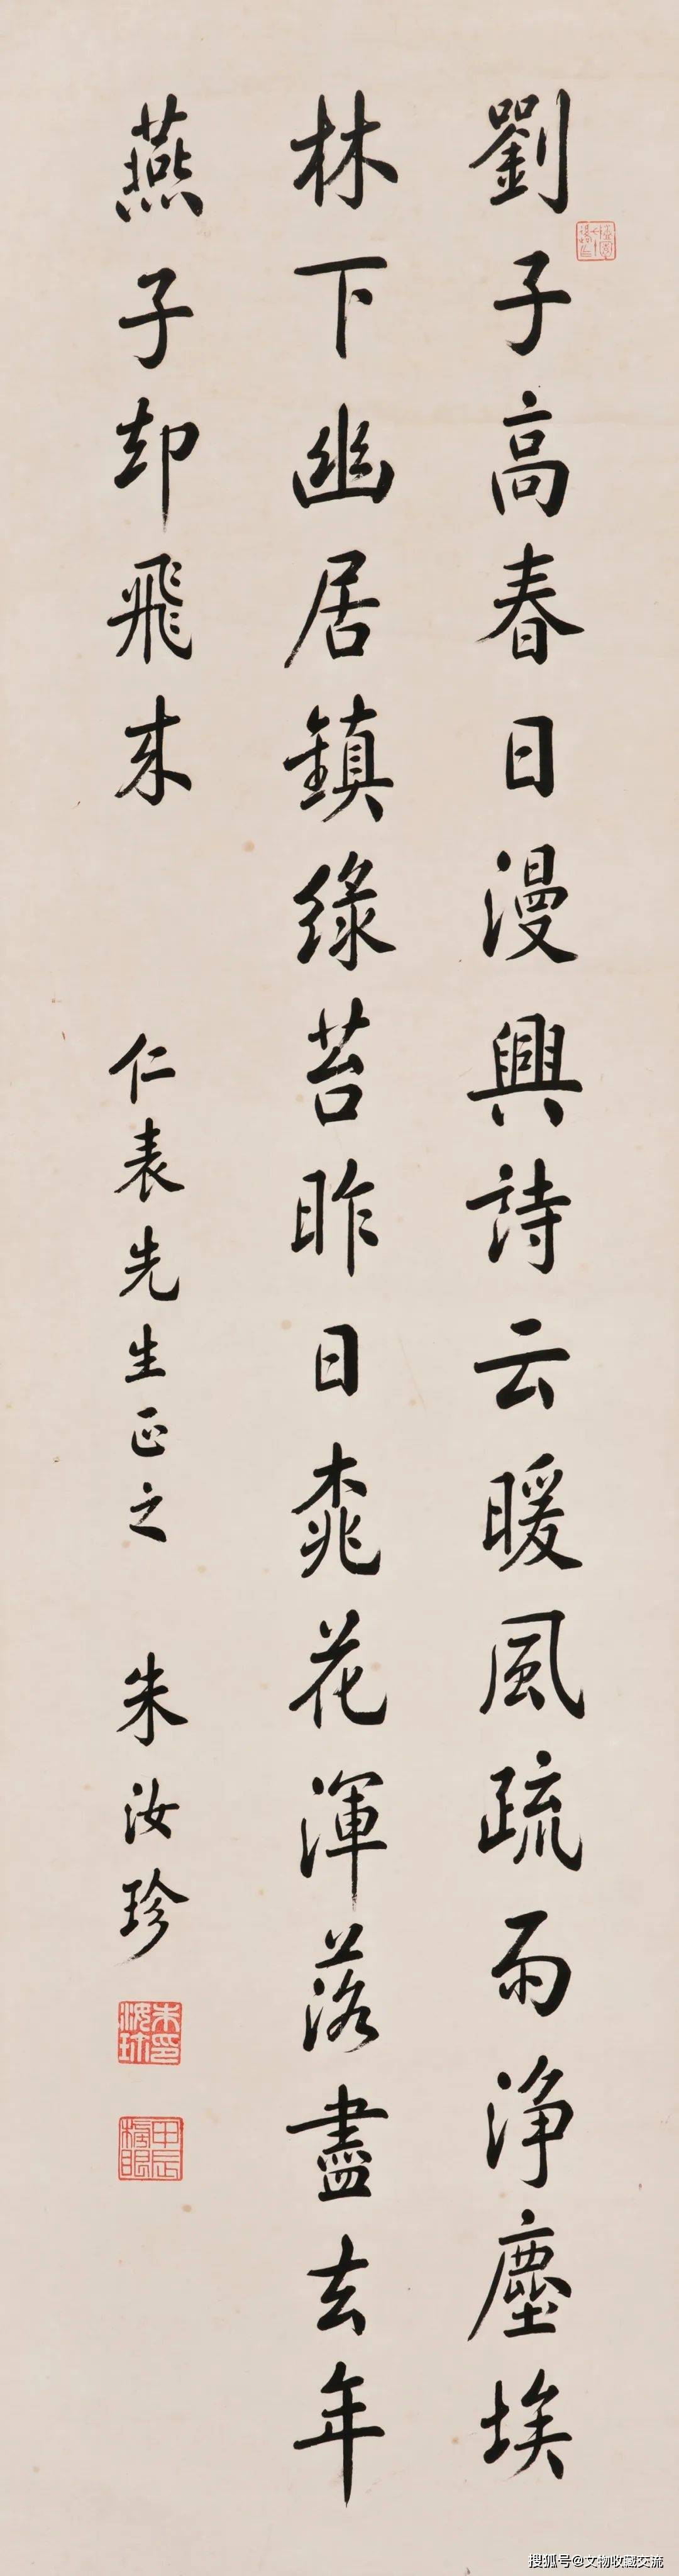 劉子高春日漫興詩云暖風疏雨浄塵埃
林下幽居鎮綠苔昨日桃花渾落盡去年
燕子却飛来
仁表先生正之
朱汝珍
朱汝珍印
甲辰榜眼
搜狐号@文物收藏交流